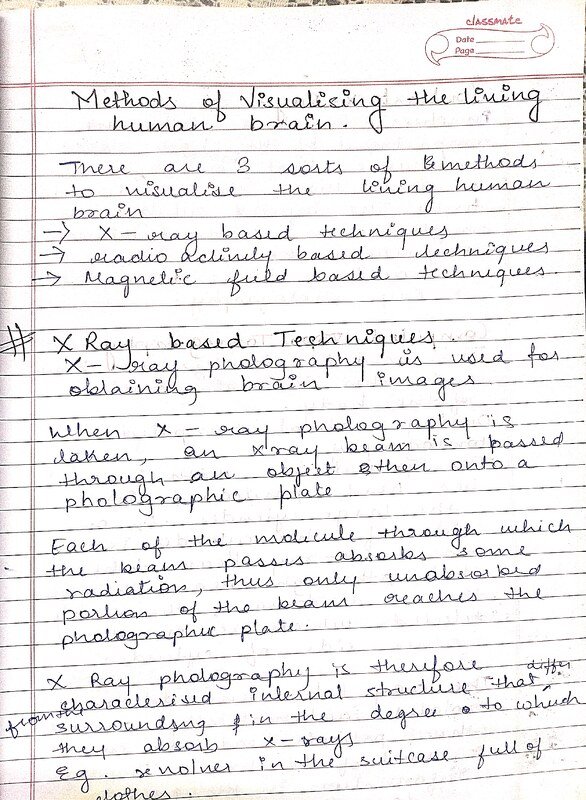 classmate
Date
Page
Methods of Visualising the living
human brain.
There are 3 sorts of methods
to visualise the living human
brain
→ X-ray based techniques
→ radio activity based techniques
→ Magnetic field based techniques.
# X Ray based Techniques.
X-ray photography is used for
obtaining brain images
When X-ray photography is
taken, an xray beam is passed
through an object & then onto a
photographic plate
Each of the molecule through which
the beam passes absorbs some
radiation, thus only unabsorbed
portion of the beam reaches the
photographic plate.
X Ray photography is therefore
characterised internal structure that differ
from the surrounding in the degree to which
they absorb x-rays
Eg. in the suitcase full of
clothes.